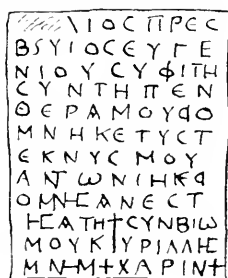 ΙΟC ΠΡΕC
ΒSΥΙΟCΕΥΓΕ
ΝΙΟΥCΥΦΙΤΗ
CΥΝΤΗΠΕΝ
ΘΕΡΑΜΟΥΦΟ
ΜΝΗΚΕΤΥCΤ
ΕΚΝΥCΜΟΥ
ΑΝΤѠΝΙΗΚΦ
ΟΜΝΗΑΝΕCΤ
ΗCΑΤΗ†CΥΝΒΙѠ
ΜΟΥΚ ΥΡΙΛΛΗC
ΜΝΗΜ†ΧΑΡΙΝ†